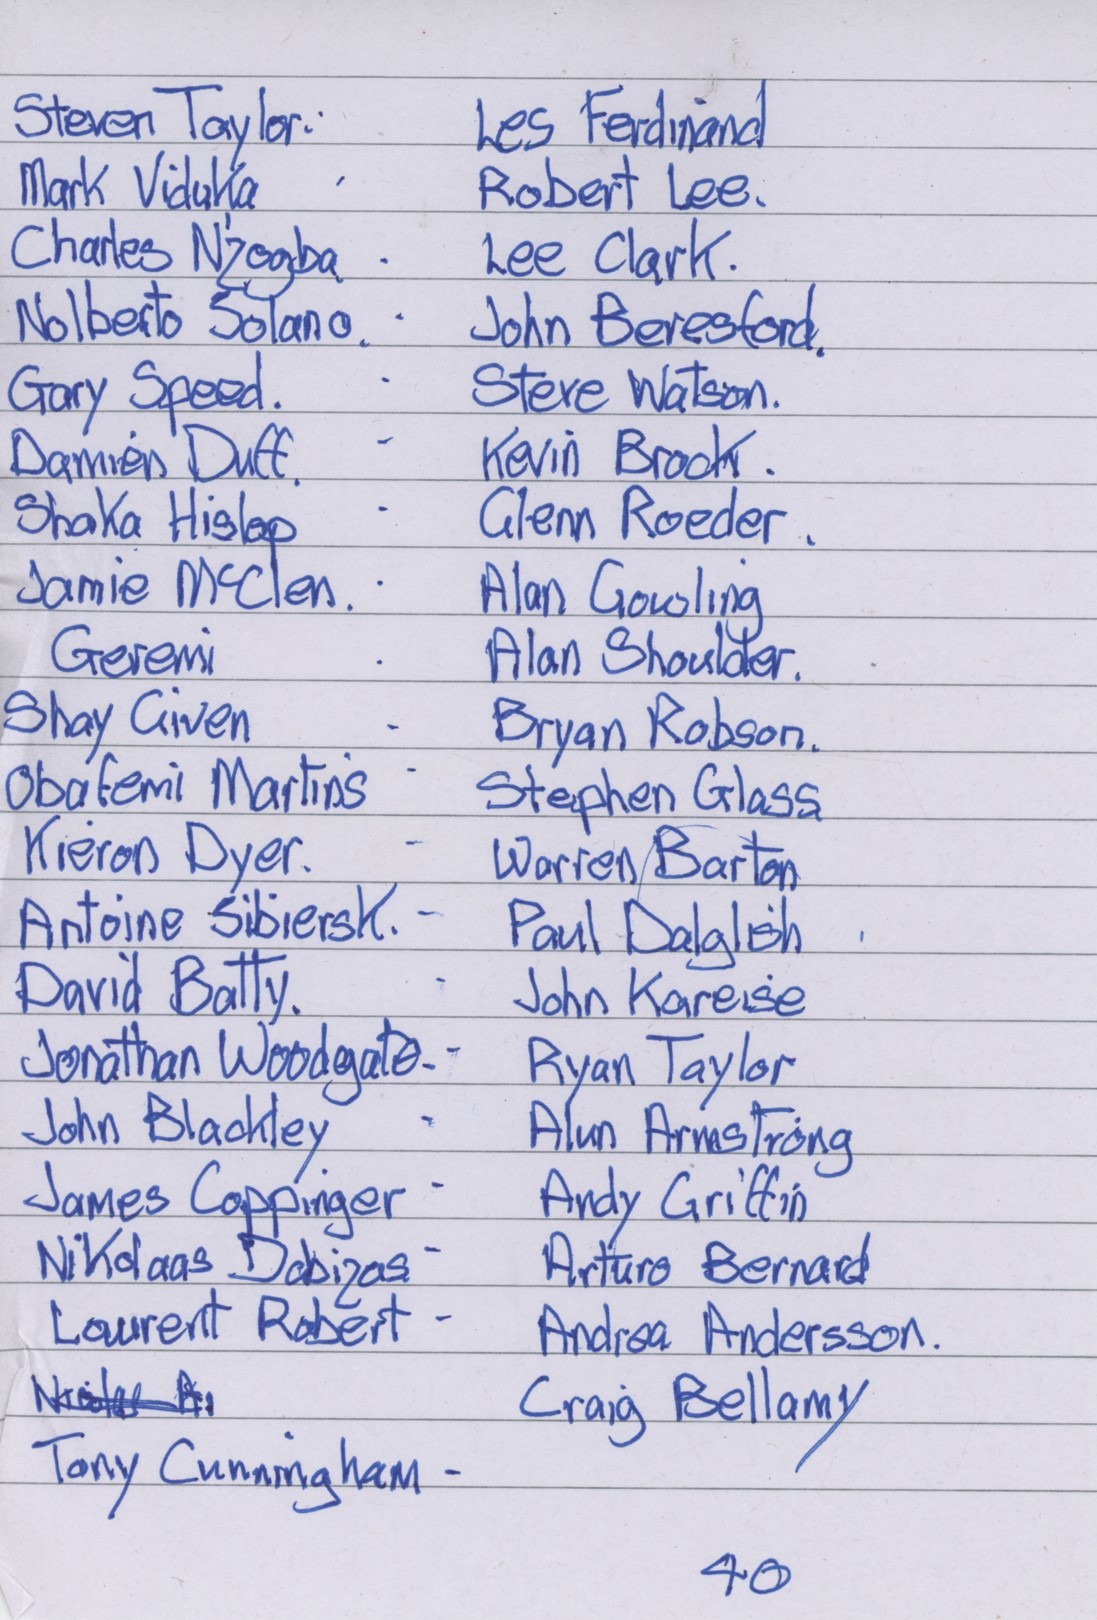 Steven Taylor. Les Ferdinand
Mark Viduka Robert Lee.
Charles N'zogba. Lee Clark.
Nolberto Solano. John Beresford.
Gary Speed. Steve Watson.
Damien Duff. Kevin Brock.
Shaka Hislop Glenn Roeder.
Jamie McClen. Alan Gowling
Geremi Alan Shoulder.
Shay Given - Bryan Robson.
Obafemi Martins - Stephen Glass
Kieron Dyer. - Warren Barton
Antoine Sibiersk. - Paul Dalglish
David Batty. - John Kareise
Jonathan Woodgate. - Ryan Taylor
John Blackley - Alun Armstrong
James Coppinger - Andy Griffin
Nikolaas Dabizas - Arturo Bernard
Laurent Robert - Andrea Andersson.
Craig Bellamy
Tony Cunningham -
40